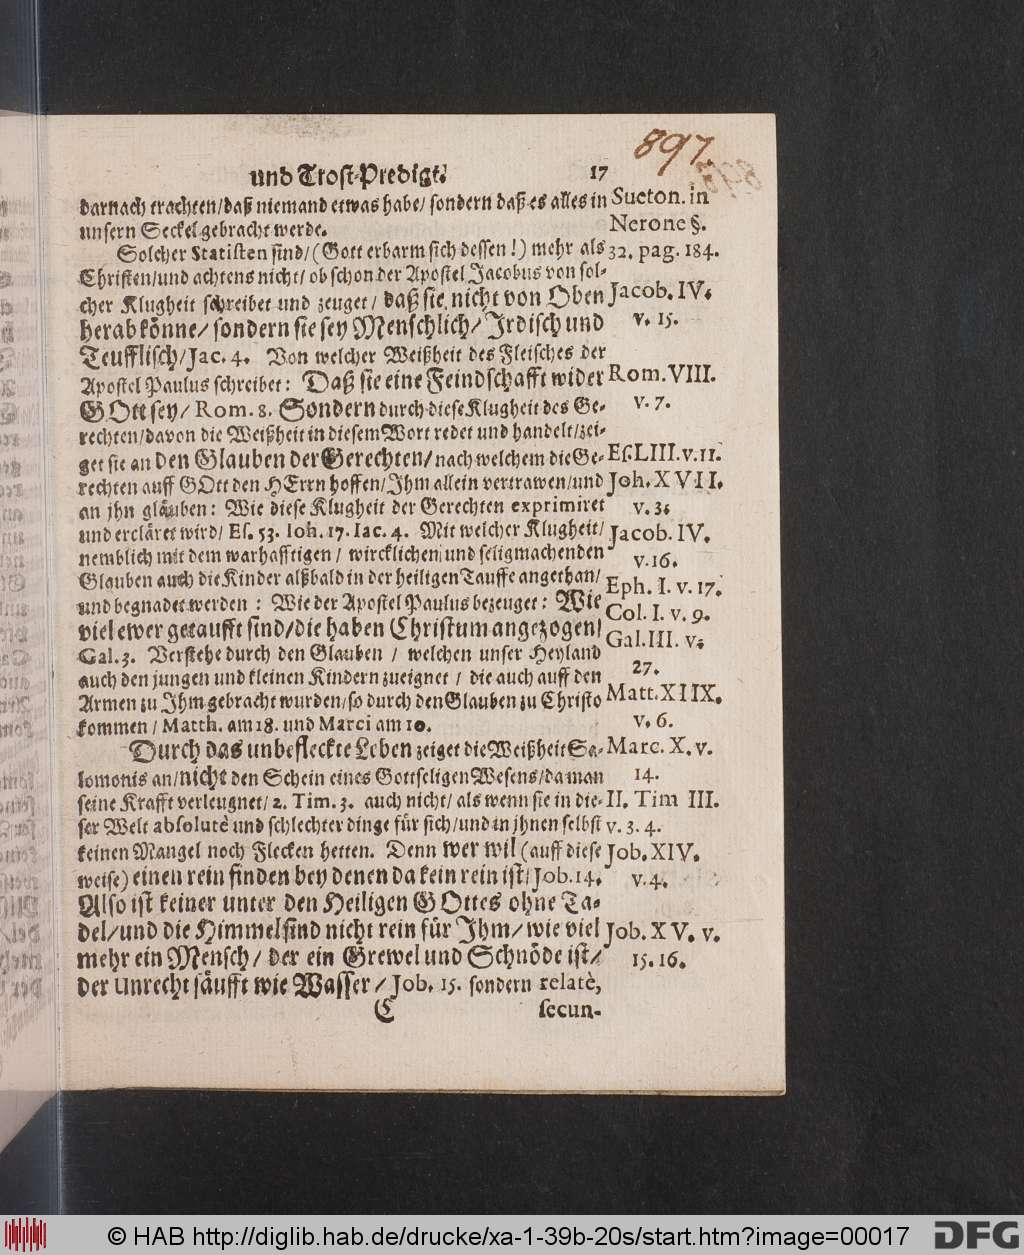 897.
und Trost-Predigt. 17
darnach trachten/daß niemand etwas habe/ sondern daß es alles in
unsern Seckel gebracht werde.
Solcher Statisten sind/(Gott erbarm sich dessen!) mehr als
Christen/und achtens nicht/ ob schon der Apostel Jacobus von sol-
cher Klugheit schreibet und zeuget/ daß sie nicht von Oben
herab könne/ sondern sie sey Menschlich/ Irdisch und
Teufflisch/ Jac. 4. Von welcher Weißheit des Fleisches der
Apostel Paulus schreibet: Daß sie eine Feindschafft wider
GOtt sey/ Rom. 8. Sondern durch diese Klugheit des Ge-
rechten/davon die Weißheit in diesem Wort redet und handelt/zei-
get sie an den Glauben der Gerechten/ nach welchem die Ge-
rechten auff GOtt den HErrn hoffen/ Ihm allein vertrawen/und
an jhn gläuben: Wie diese Klugheit der Gerechten exprimiret
und ercläret wird/ Es. 53. Ioh. 17. Iac. 4. Mit welcher Klugheit/
nemblich mit dem warhafftigen / wircklichen und seligmachenden
Glauben auch die Kinder alßbald in der heiligen Tauffe angethan/
und begnadet werden : Wie der Apostel Paulus bezeuget: Wie
viel ewer getaufft sind/die haben Christum angezogen/
Gal. 3. Verstehe durch den Glauben / welchen unser Heyland
auch den jungen und kleinen Kindern zueignet / die auch auff den
Armen zu Ihm gebracht wurden/so durch den Glauben zu Christo
kommen / Matth. am 18. und Marci am 10.
Durch das unbefleckte Leben zeiget die Weißheit Sa-
lomonis an/nicht den Schein eines Gottseligen Wesens/da man
seine Krafft verleugnet/ 2. Tim. 3. auch nicht/ als wenn sie in die-
ser Welt absolutè und schlechter dinge für sich/und in jhnen selbst
keinen Mangel noch Flecken hetten. Denn wer wil (auff diese
weise) einen rein finden bey denen da kein rein ist/ Job. 14.
Also ist keiner unter den Heiligen GOttes ohne Ta-
del/und die Himmel sind nicht rein für Ihm/ wie viel
mehr ein Mensch/ der ein Grewel und Schnöde ist/
der Unrecht säufft wie Wasser / Job. 15. sondern relatè,
C secun-
Sueton. in
Nerone §.
32. pag. 184.
Jacob. IV.
v. 15.
Rom. VIII.
v. 7.
Es. LIII. v. 11.
Joh. XVII.
v. 3.
Jacob. IV.
v. 16.
Eph. I. v. 17.
Col. I. v. 9.
Gal. III. v.
27.
Matt. XIIX.
v. 6.
Marc. X. v.
14.
II. Tim III.
v. 3. 4.
Job. XIV.
v. 4.
Job. XV. v.
15. 16.
© HAB http://diglib.hab.de/drucke/xa-1-39b-20s/start.htm?image=00017
DFG